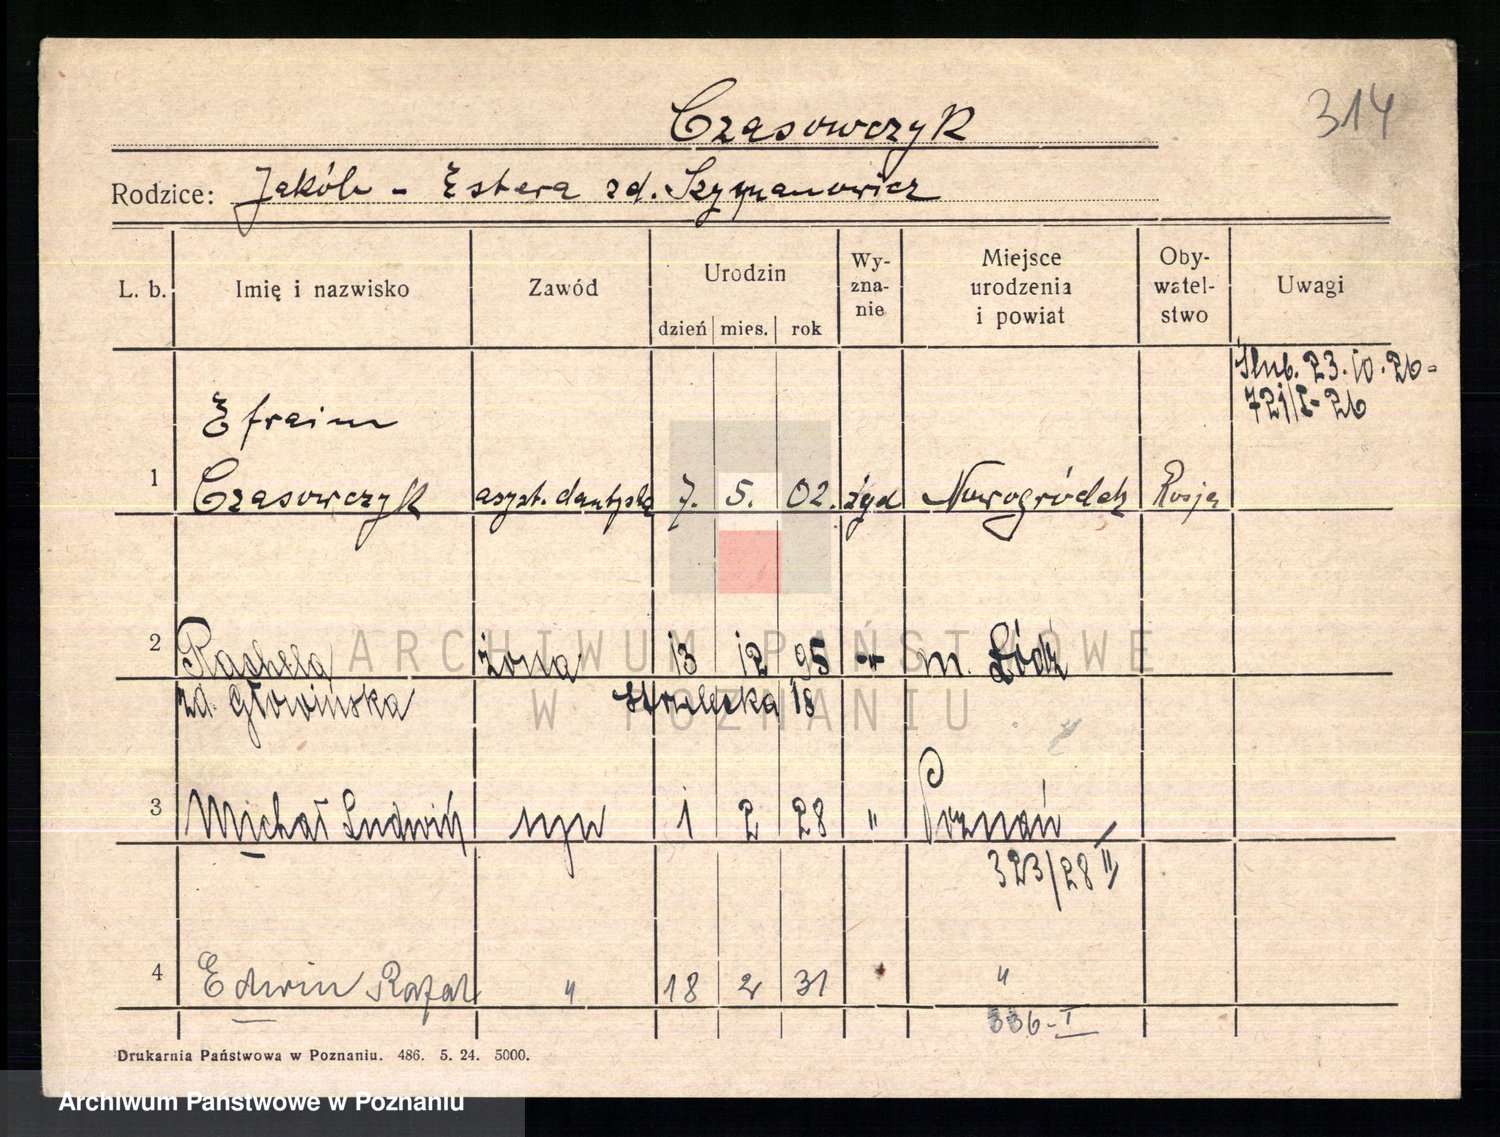 314
Czasowczyk
Rodzice: Jakób - Estera zd. Szymanowicz
L. b. Imię i nazwisko Zawód Urodzin dzień mies. rok Wy-zna-nie Miejsce urodzenia i powiat Oby-watel-stwo Uwagi
Ślub. 23.10.26-
721/I-26
Efraim
1 Czasowczyk asyst. dentysta 7. 5. 02. żyd Nowogródek Rosja
2 Rachela żona 13 12 95 m. Łódź
zd. Głowińska Strzelecka 18
3 Michał Ludwik syn 1 2 28 " Poznań
323/28 II
4 Edwin Rafał " 18 2 31 "
336-I
Drukarnia Państwowa w Poznaniu. 486. 5. 24. 5000.
ARCHIWUM PAŃSTWOWE
W POZNANIU
Archiwum Państwowe w Poznaniu